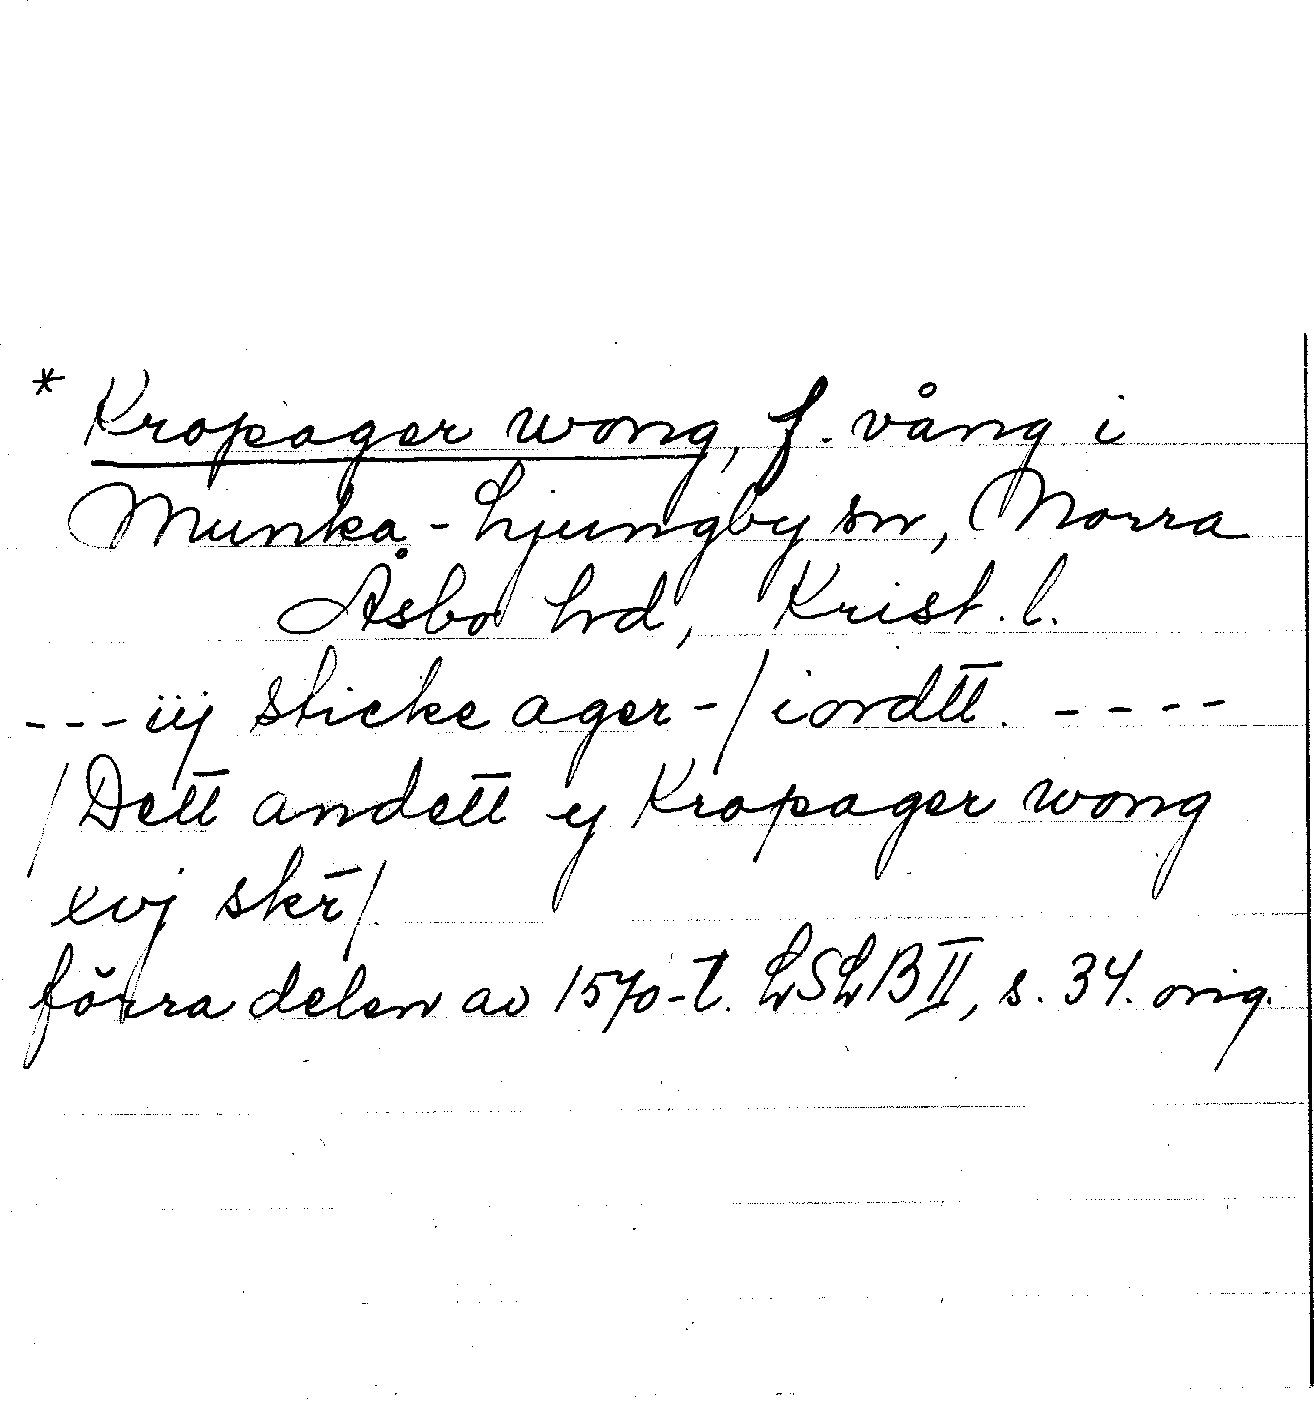 * Kropager wong, f. vång i
Munka-Ljungby sn, Norra
Åsbo hd, Krist. l.
---iij sticke ager-/iordtt̄. ----
/Dett̄ andett̄ ij Kropager wong
xvj skr̄/
förra delen av 1570-t. LSLB II, s. 34. orig.